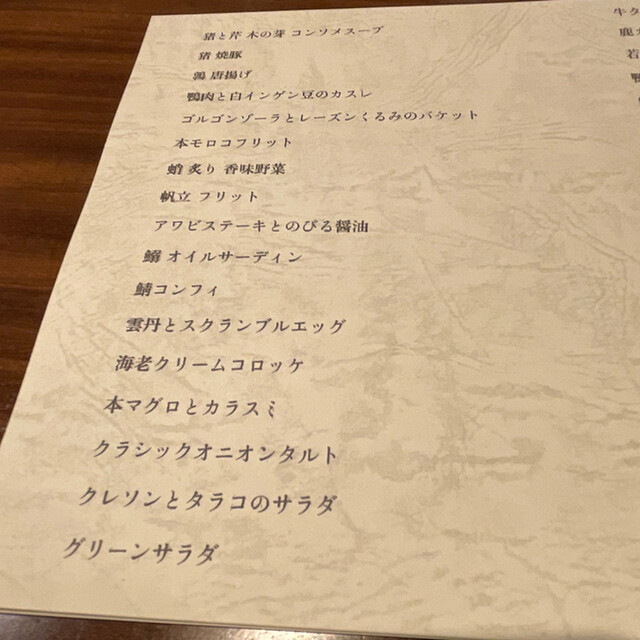 猪と芹 木の芽 コンソメスープ
猪 焼豚
鶉 唐揚げ
鴨肉と白インゲン豆のカスレ
ゴルゴンゾーラとレーズンくるみのバケット
本モロコフリット
蛸 炙り 香味野菜
帆立 フリット
アワビステーキとのびる醤油
鰯 オイルサーディン
鯖コンフィ
雲丹とスクランブルエッグ
海老クリームコロッケ
本マグロとカラスミ
クラシックオニオンタルト
クレソンとタラコのサラダ
グリーンサラダ
牛タ
鹿
若
鴨